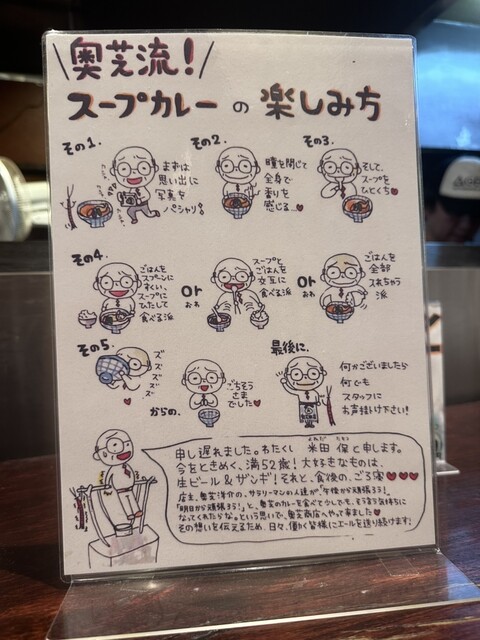 奥芝流！
スープカレーの楽しみ方
その1.
まずは
思い出に
写真を
パシャリ♪
その2.
瞳を閉じて
全身で
香りを
感じる…♥
その3.
そして、
スープを
ひとくち♥
その4.
ごはんを
スプーンに
すくい、
スープに
ひたして
食べる派
or
おぁ
スープと
ごはんを
交互に
食べる派
or
おぁ
ごはんを
全部
入れちゃう
派
その5.
ズ
ズ
ズ
ズ
ズ
からの、
ごちそう
さま
でした♥
最後に、
何かございましたら
何でも
スタッフに
お声掛け下さい！
申し遅れました。わたくし 米田 保と申します。
よねだ たもつ
今をときめく、満52歳！大好きなものは、
生ビール＆ザンギ！それと、食後のごろ寝♥♥♥
店主、奥芝洋介の、サラリーマンの人達が、「午後から頑張ろう！」
「明日から頑張ろう！」と、奥芝のカレーを食べて少しでも、そう言う気持ちに
なってくれたらな。という思いで、奥芝商店へやって来ました♥
その想いを伝えるため、日々、働く皆様にエールを送り続けます！